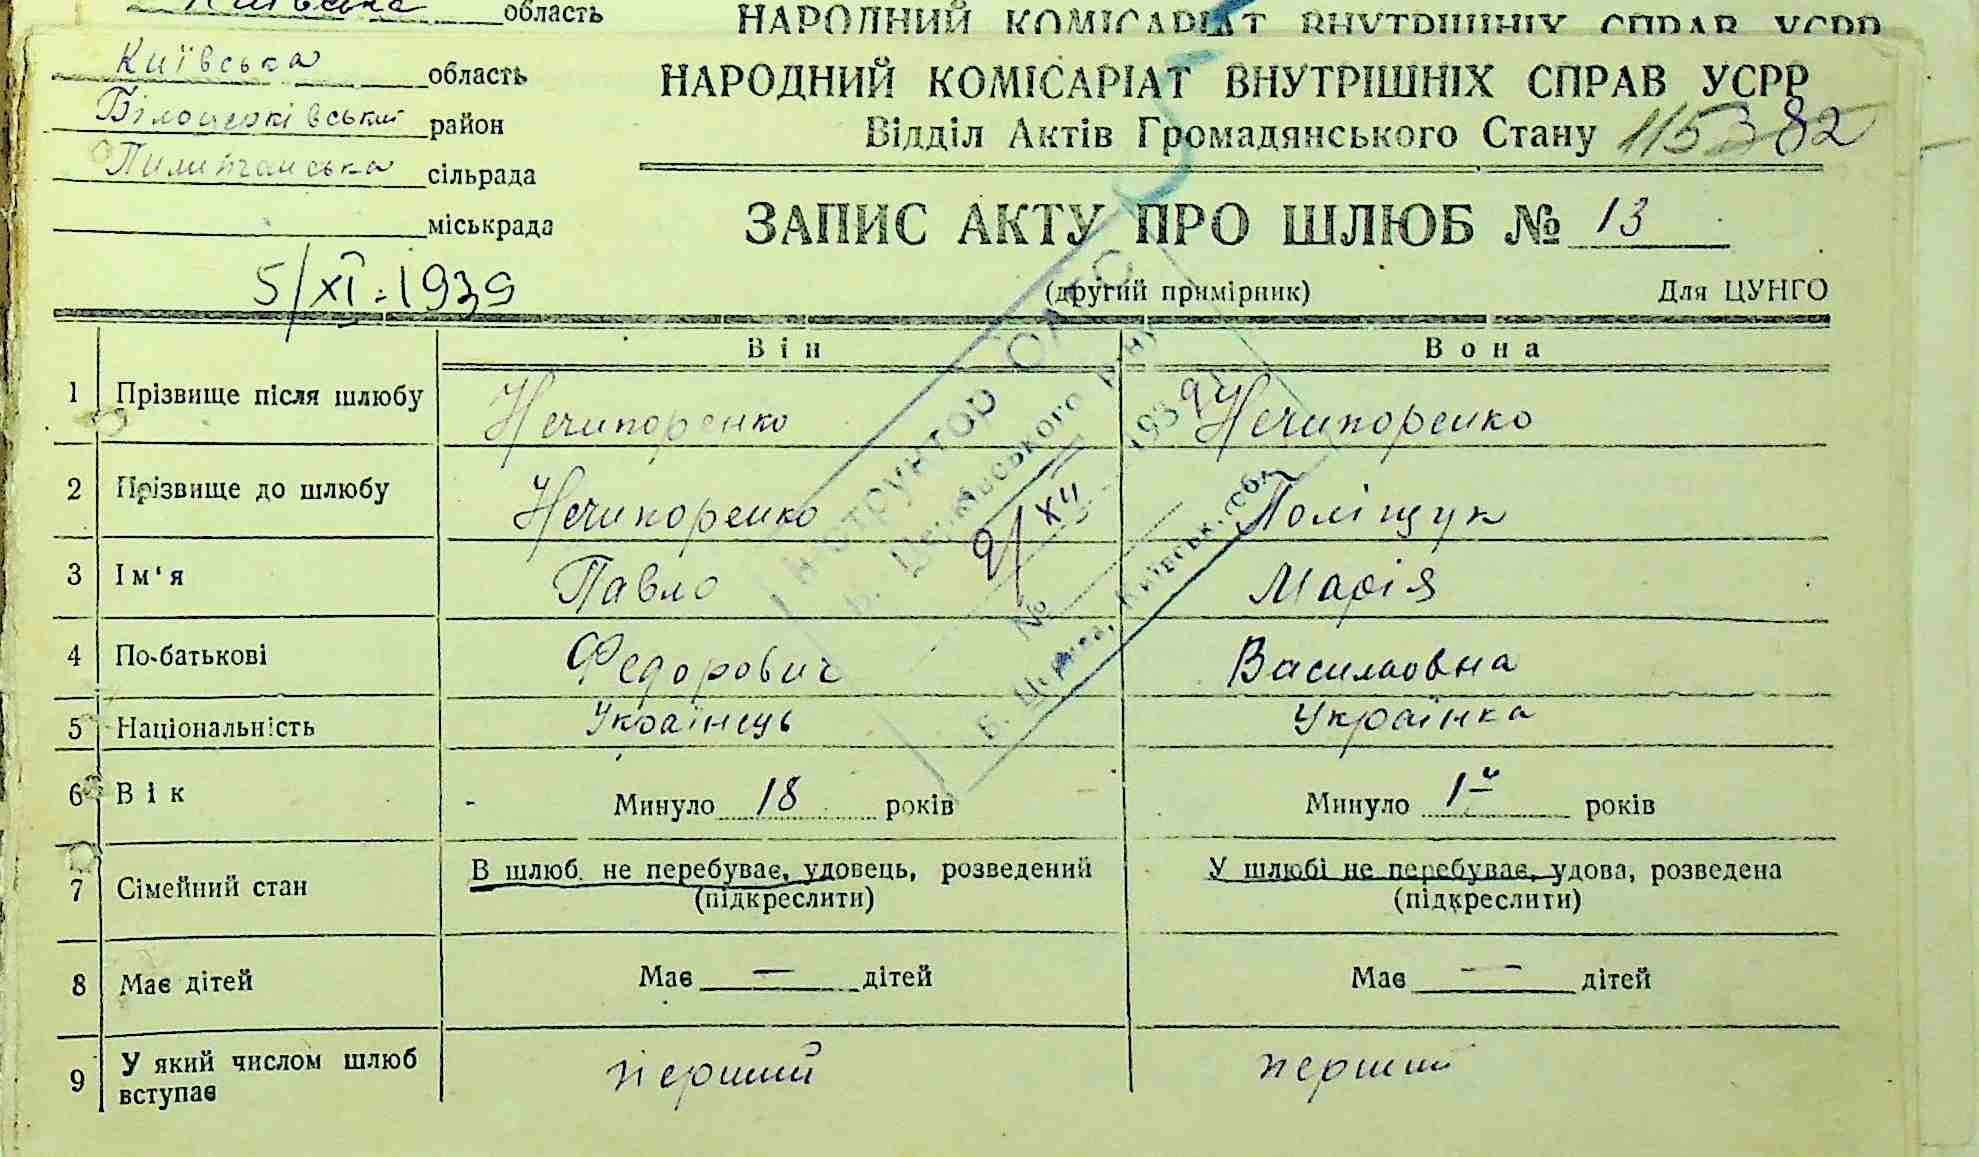 область
НАРОДНИЙ КОМІСАРІАТ ВНУТРІШНІХ СПРАВ УСРР
Київська область
НАРОДНИЙ КОМІСАРІАТ ВНУТРІШНІХ СПРАВ УСРР
Білоцерківський район
Відділ Актів Громадянського Стану 115 82
сільрада
міськрада
ЗАПИС АКТУ ПРО ШЛЮБ № 13
5/XI. 1939
(другий примірник) Для ЦУНГО
Він Вона
1 Прізвище після шлюбу Нечипоренко Нечипоренко
2 Прізвище до шлюбу Нечипоренко Поліщук
3 Ім'я Павло Марія
4 По-батькові Федорович Васильовна
5 Національність Українець Українка
6 Вік Минуло 18 років Минуло років
7 Сімейний стан В шлюб. не перебуває, удовець, розведений У шлюбі не перебуває, удова, розведена
(підкреслити) (підкреслити)
8 Має дітей Має — дітей Має — дітей
9 У який числом шлюб вступає перший перший
Інструктор ОАГС
Б. Церківського р-ну
№
Б. Церква, Київськ. обл.